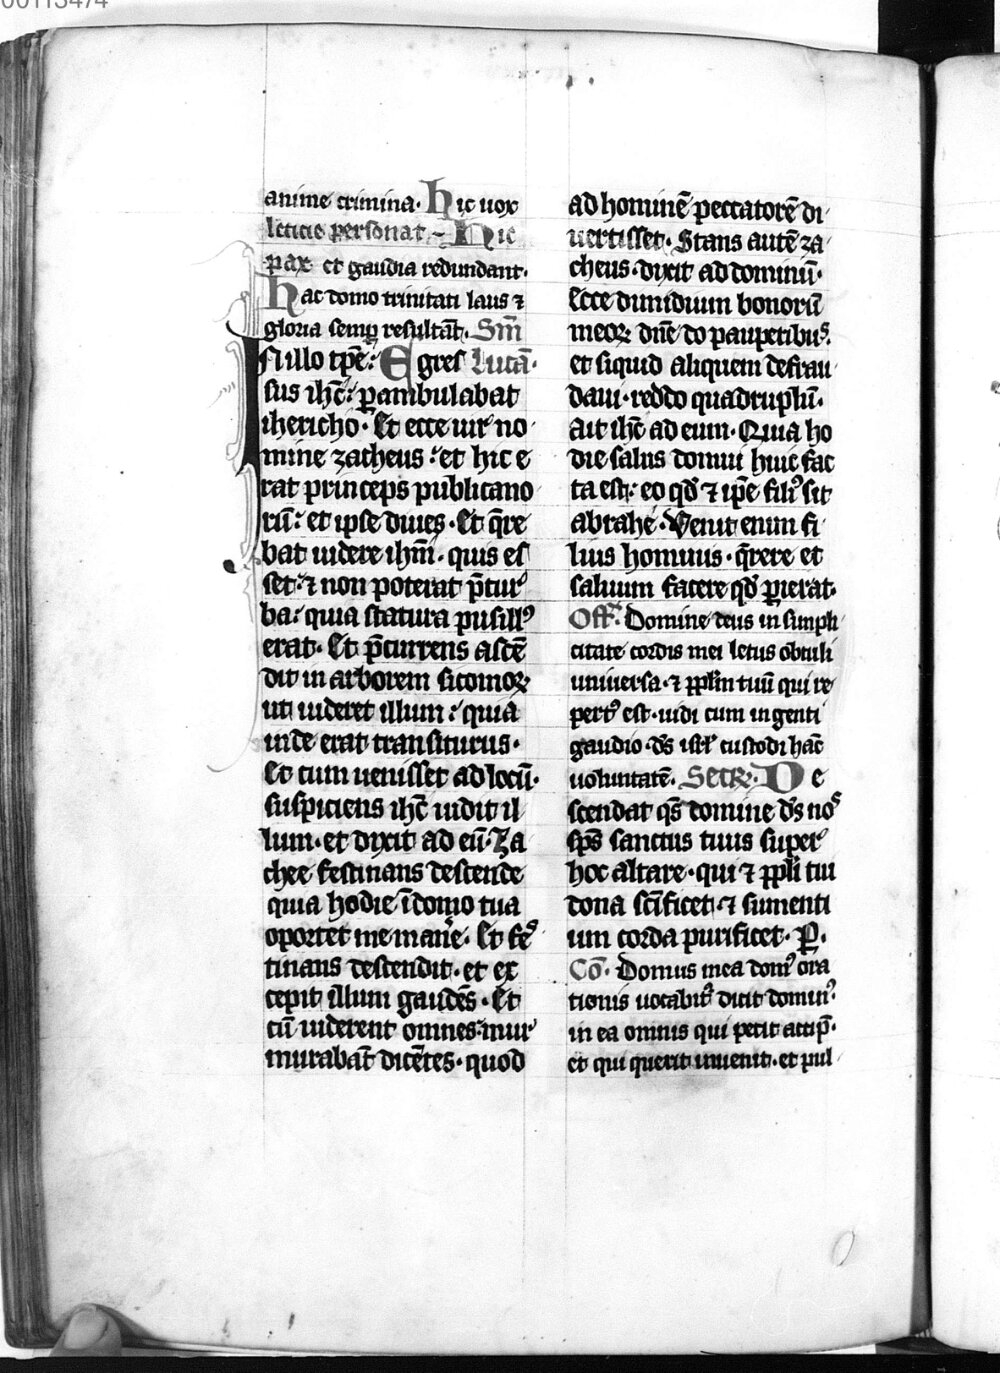 00113474
anime crimina. Hic uox
leticie personat. Hic
pax et gaudia redundant.
Hac domo trinitati laus ⁊
gloria semꝑ resultāt. Scḋm
In illo tp̄e: Egres Lucā.
sus ih̄c: ꝑambulabat
ihericho. Et ecce uir no
mine zacheus: et hic e
rat princeps publicano
rū: et ipse diues. Et q̄re
bat uidere ihm̄. quis es
set: ⁊ non poterat p̄ tur
ba: quia statura pusillꝰ
erat. Et p̄currens ascē
dit in arborem sicomoꝝ
ut uideret illum: quia
inde erat transiturus.
Et cum uenisset ad locū.
suspiciens ih̄c uidit il
lum. et dixit ad eū. Za
chee festinans descende
quia hodie ī domo tua
oportet me manē. Et fes
tinans descendit. et ex
cepit illum gaudēs. Et
cū uiderent omnes: mur
murabāt dicētes. quod
ad hominē peccatorē di
uertisset. Stans autē za
cheus. dixit ad dominū.
Ecce dimidium bonorū
meoꝝ dn̄e do pauperibuꝰ.
et siquid aliquem defrau
daui. reddo quadruplū.
Ait ih̄c ad eum. Quia ho
die salus domui huic fac
ta est: eo qḋ ⁊ ip̄e filiꝰ sit
abrahe. Venit enim fi
lius hominis. q̄rere et
saluum facere qḋ ꝑierat.
Off. Domine deus in simpli
citate cordis mei letus obtuli
uniuersa. ⁊ pp̄lm tuū qui re
pertꝰ est. uidi cum ingenti
gaudio. ds̄ isrl̄ custodi hāc
uoluntatē. Secr. De
scendat qs̄ domine ds̄ nos
sp̄s sanctus tuus super
hoc altare. qui ⁊ pp̄li tui
dona sc̄ificet. ⁊ sumenti
um corda purificet. P.
Cō. Domus mea domꝰ ora
tionis uocabitᷣ dicit dominꝰ.
in ea omnis qui petit accip̄.
et qui querit inuenit. et pul